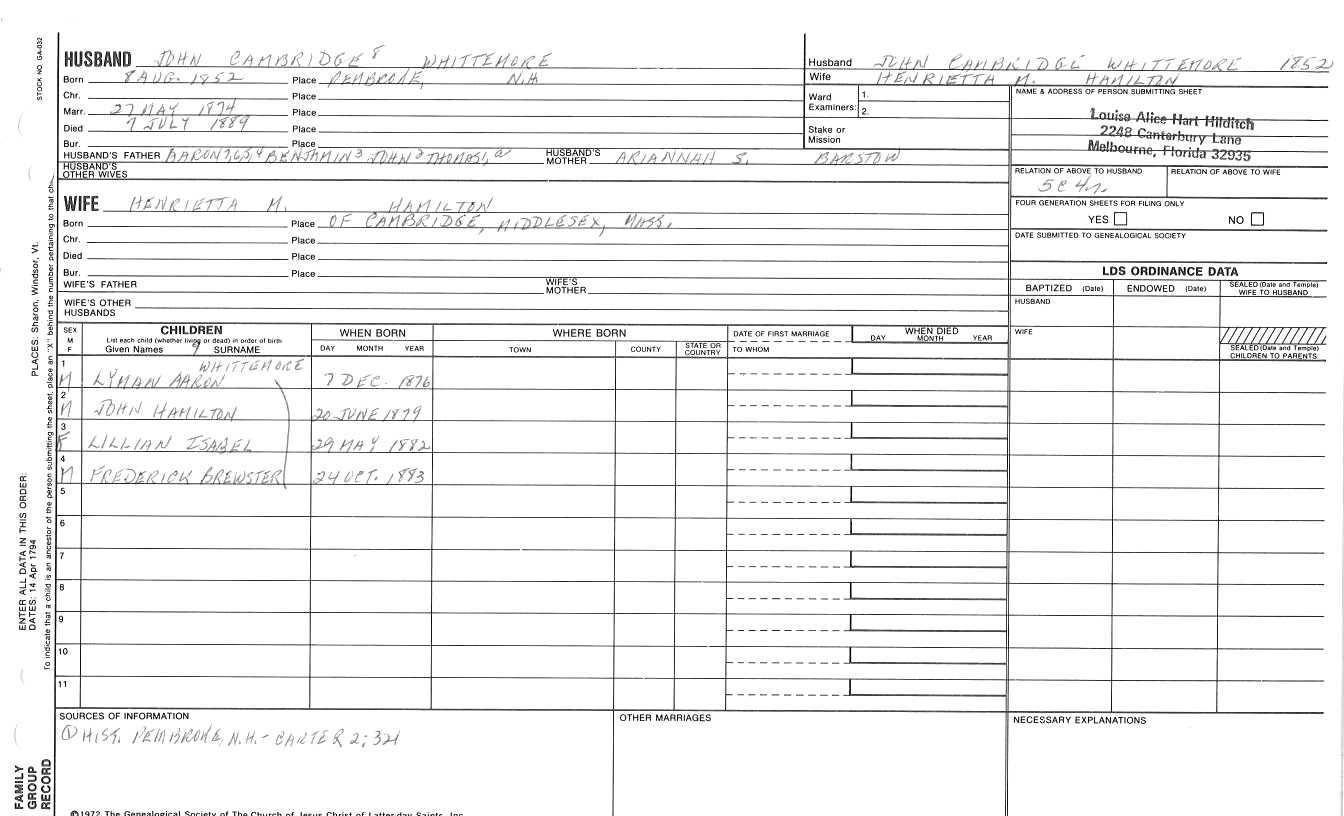 STOCK NO. GA-032
HUSBAND JOHN CAMBRIDGE 8 WHITTEMORE
Born 8 AUG. 1852 Place PEMBROKE, N.H
Chr. Place
Marr. 27 MAY 1874 Place
Died 7 JULY 1889 Place
Bur. Place
HUSBAND'S FATHER AARON 7,6,5,4 BENJAMIN 3 JOHN 2 THOMAS 1, a HUSBAND'S MOTHER ARIANNAH S. BARSTOW
HUSBAND'S OTHER WIVES
Husband JOHN CAMBRIDGE WHITTEMORE 1852
Wife HENRIETTA M. HAMILTON
Ward 1.
Examiners: 2.
Stake or
Mission
NAME & ADDRESS OF PERSON SUBMITTING SHEET
Louise Alice Hart Hilditch
2248 Canterbury Lane
Melbourne, Florida 32935
RELATION OF ABOVE TO HUSBAND RELATION OF ABOVE TO WIFE
5C 4r.
FOUR GENERATION SHEETS FOR FILING ONLY
YES NO
DATE SUBMITTED TO GENEALOGICAL SOCIETY
WIFE HENRIETTA M. HAMILTON
Born Place OF CAMBRIDGE, MIDDLESEX, MASS.
Chr. Place
Died Place
Bur. Place
WIFE'S FATHER WIFE'S MOTHER
WIFE'S OTHER HUSBANDS
LDS ORDINANCE DATA
BAPTIZED (Date) ENDOWED (Date) SEALED (Date and Temple) WIFE TO HUSBAND
HUSBAND
WIFE
SEALED (Date and Temple) CHILDREN TO PARENTS
SEX M F
CHILDREN
List each child (whether living or dead) in order of birth
Given Names 9 SURNAME
WHEN BORN
DAY MONTH YEAR
WHERE BORN
TOWN COUNTY STATE OR COUNTRY
DATE OF FIRST MARRIAGE
TO WHOM
WHEN DIED
DAY MONTH YEAR
1 M LYMAN AARON WHITTEMORE 7 DEC. 1876
2 M JOHN HAMILTON 20 JUNE 1879
3 F LILLIAN ISABEL 29 MAY 1882
4 M FREDERICK BREWSTER 24 OCT. 1883
5
6
7
8
9
10
11
SOURCES OF INFORMATION
① HIST. PEMBROKE, N.H. - CARTER 2; 321
OTHER MARRIAGES
NECESSARY EXPLANATIONS
©1972 The Genealogical Society of The Church of Jesus Christ of Latter-day Saints, Inc.
PLACES: Sharon, Windsor, Vt.
ENTER ALL DATA IN THIS ORDER:
DATES: 14 Apr 1794
To indicate that a child is an ancestor of the person submitting the sheet, place an "X" behind the number pertaining to that ch
FAMILY
GROUP
RECORD